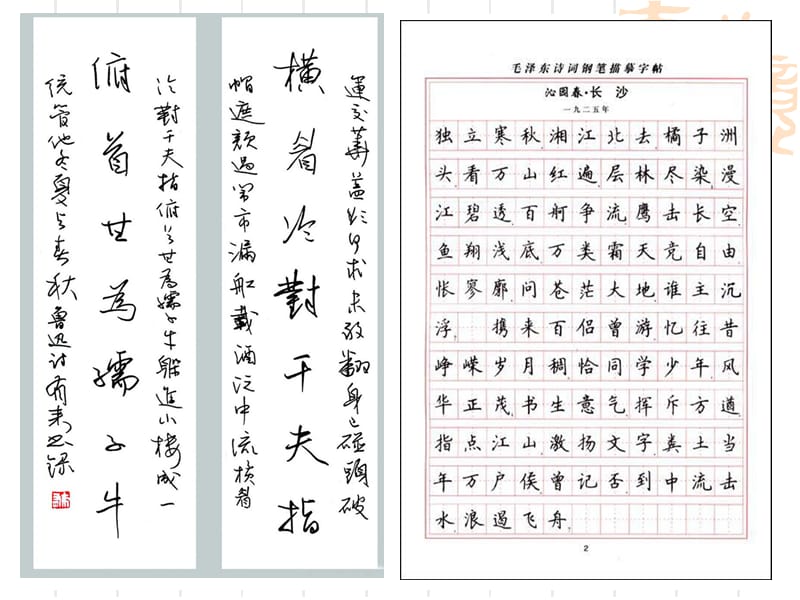 運交華蓋欲何求未敢翻身已碰頭破
橫眉冷對千夫指
帽遮顏過鬧市漏船載酒泛中流橫眉
冷對千夫指俯首甘為孺子牛躲進小樓成一
俯首甘為孺子牛
统管他冬夏与春秋 鲁迅诗
毛泽东诗词钢笔描摹字帖
沁园春·长 沙
一九二五年
独立寒秋湘江北去橘子洲
头看万山红遍层林尽染漫
江碧透百舸争流鹰击长空
鱼翔浅底万类霜天竞自由
怅寥廓问苍茫大地谁主沉
浮 携来百侣曾游忆往昔
峥嵘岁月稠恰同学少年风
华正茂书生意气挥斥方遒
指点江山激扬文字粪土当
年万户侯曾记否到中流击
水浪遏飞舟
2